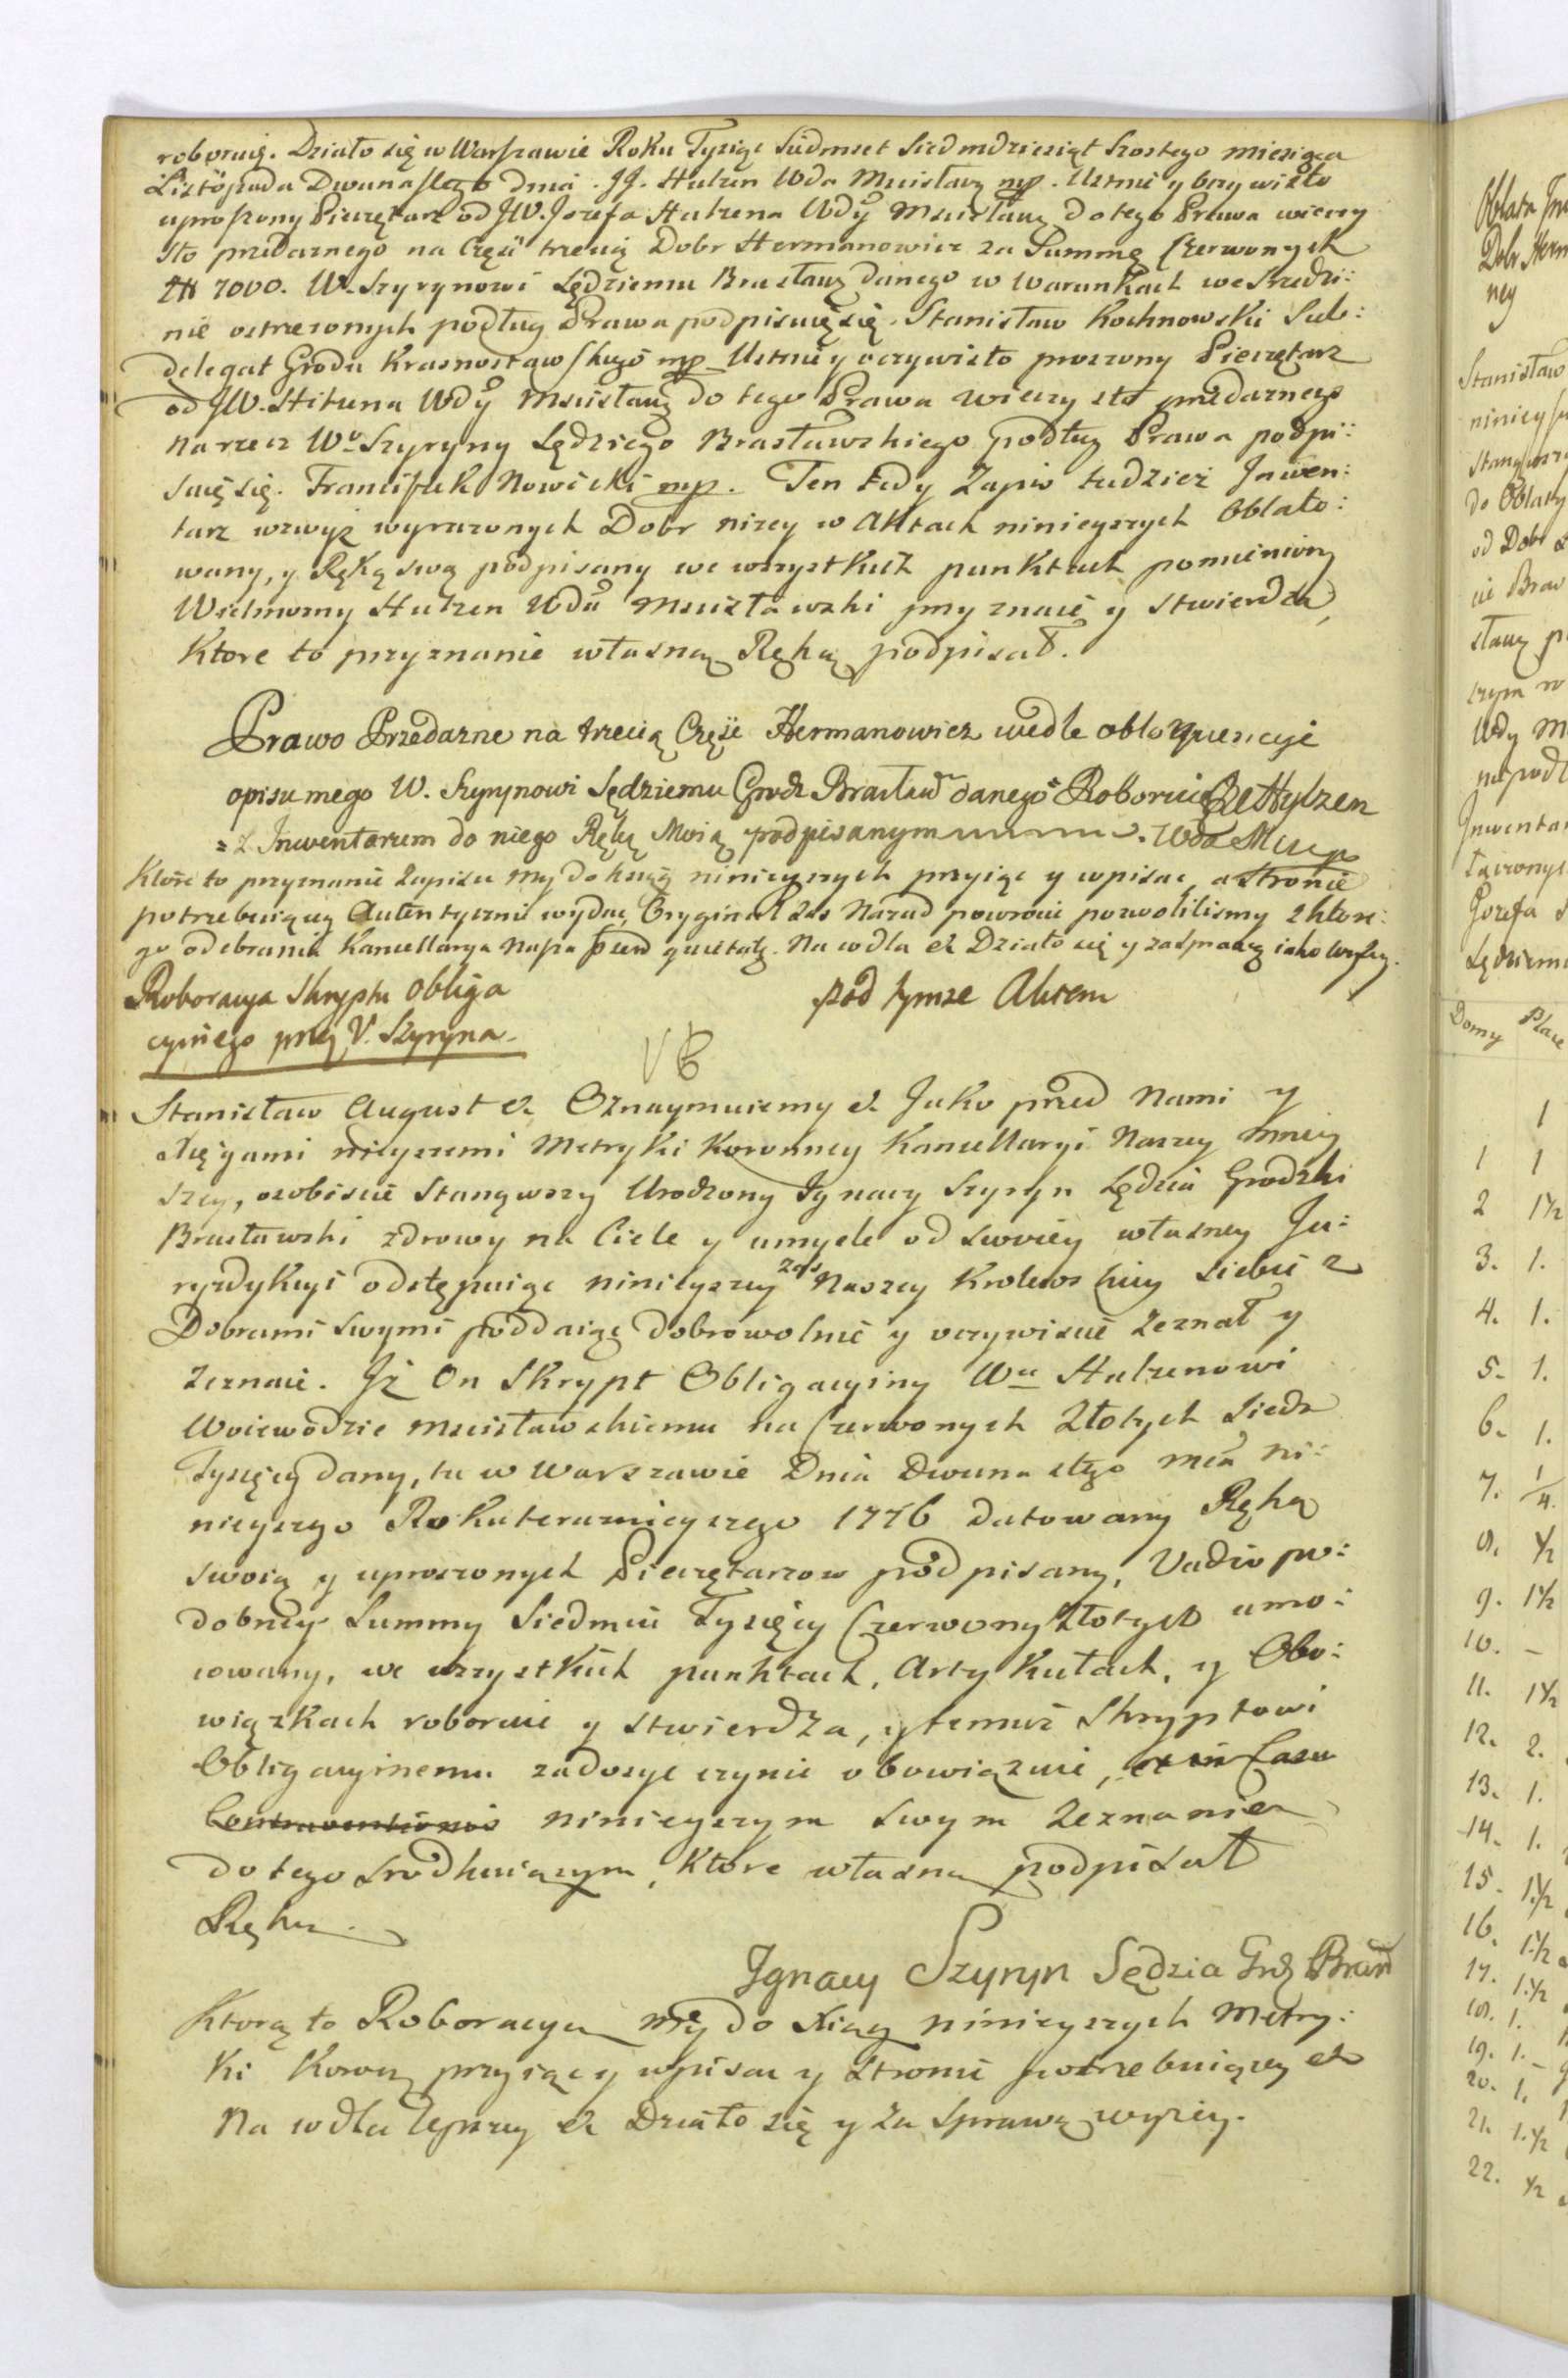 roboruię. Działo się w Warszawie Roku Tysiąc Siedmset Siedmdziesiąt Szostego miesiąca
Listopada Dwunastego dnia. JJ. Hulzen Wda Mscisławs mp. Ustnie y oczywisto
uproszony Pieczętarz od JW. Jozefa Hulzena Wdy Mscisławs do tego Prawa wieczy
sto przedaznego na Część trzecią Dobr Hermanowicz za Summę Czerwonych
Złł 7000. W. Szyrynowi Sędziemu Brasławs danego w Warunkach we Srzedzi:
nie ostrzezonych podług Prawa podpisuię się. Stanisław Kochnowski Sub:
delegat Grodu Krasnostawskiego mp Ustnie y oczywisto proszony Pieczętarz
od JW. Hilzena Wdy Mscisławs do tego Prawa wieczysto przedaznego
na rzecz Wo Szyryny Sędziego Brasławskiego podług Prawa podpi:
suię się. Franciszek Nowicki mp. Ten tedy Zapis tudziesz Inwen:
tarz wzwyż wyrazonych Dobr nizey w Aktach ninieyszych Oblato:
wany, y Ręką swą podpisany we wszystkich punktach pomieniony
Wielmozny Hulzen Wda Mscisławski przyznaie y stwierdza,
Ktore to przyznanie własną Ręką podpisał.
Prawo Przedazne na trzecią Część Hermanowicz wedle obloquencyi
opisu mego W. Szyrynowi Sędziemu Grodz Brasław danego Roboruię JHylzen
z Inwentarzem do niego Ręką Moią podpisanym Wda Mscis
Ktore to przyznanie Zapisu my do ksiąg ninieyszych przyiąc y wpisac, a stronie
potrzebuiącey Autentycznie wydać Oryginał zas Nazad powrocić pozwolilismy z ktore:
go odebrania Kancellarya Nasza quietatę. Na co dla etc Działo się y za sprawą iako wyżey.
Roboracya Skryptu Obliga
cyinego przez V. Szyryna.
pod tymze Aktem
Stanisław August etc Oznaymuiemy etc Jako przed Nami y
Xięgami nieyszemi Metryki Koronney Kancellaryi Naszey mniey
szey, osobiscie Stanąwszy Urodzony Ignacy Szyryn Sędzia Grodzki
Brasławski zdrowy na Ciele y umysle od swoiey własney Ju:
ryzdykcyi odstępuiąc ninieyszey zas Naszey Krolewskiey siebie z
Dobrami swymi poddaiąc dobrowolnie y oczywiscie Zeznał y
Zeznaie. Iż On Skrypt Obligacyiny Wu Hulzenowi
Woiewodzie Mscisławskiemu na Czerwonych Złotych Siedm
Tysięcy dany, tu w Warszawie Dnia Dwunastego mca ni:
nieyszego Roku teraznieyszego 1776 datowany Ręką
swoią y uproszonych Pieczętarzow podpisany, Vadio po:
dobney Summy Siedmiu Tysięcy Czerwony Złotych umo:
cowany, we wszystkich punktach, Artykułach, y Obo:
wiązkach roboruie y stwierdza, y temuż Skryptowi
Obligacyinemu zadosyc czynić obowiązuie, et in Casu
Contraventionis ninieyszym swym Zeznaniem
do tego srodkuiącym, Ktore własną podpisał
Ręką.
Ignacy Szyryn Sędzia Grdz Brasł
Ktorą to Roboracyą my do Xiąg ninieyszych Metry:
ki Koronney przyiąc y wpisac y stronie potrzebuiącey etc
Na co dla lepszey etc Działo się y za sprawą wyzey.
Oblata
Dobr Herm
ney
Stanisław
niniey
Stanąwszy
do Oblaty
od Dobr
cie Bras
sławs
czym w
Wdy M
Inwentar
Jozefa
Sędziemu
Domy Place
1
1 1
2 1½
3. 1.
4. 1.
5. 1.
6. 1.
7. ¼
8. ½
9. 1½
10. –
11. 1½
12. 2.
13. 1.
14. 1.
15. 1.½
16. 1.½
17. 1.½
18. 1.
19. 1.
20. 1.
21. 1.½
22. ½